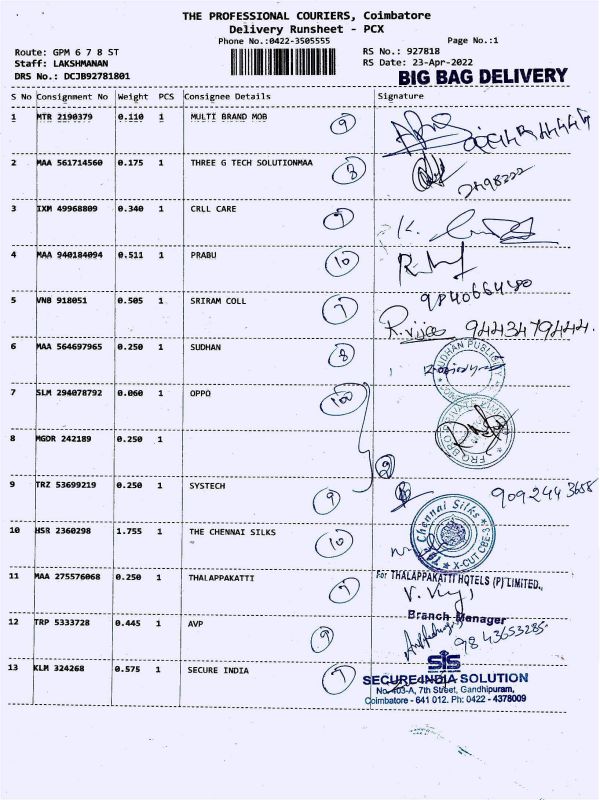 THE PROFESSIONAL COURIERS, Coimbatore
Delivery Runsheet - PCX
Phone No.:0422-3505555
Page No.:1
Route: GPM 6 7 8 ST
RS No.: 927818
Staff: LAKSHMANAN
RS Date: 23-Apr-2022
DRS No.: DCJB92781801
BIG BAG DELIVERY
S No Consignment No Weight PCS Consignee Details Signature
1 MTR 2190379 0.110 1 MULTI BRAND MOB 9
2 MAA 561714560 0.175 1 THREE G TECH SOLUTIONMAA 8
3 IXM 49968809 0.340 1 CRLL CARE
4 MAA 940184094 0.511 1 PRABU 10
9840664480
5 VNB 918051 0.505 1 SRIRAM COLL 9443479444.
6 MAA 564697965 0.250 1 SUDHAN 8
SUDHAN PUBLICITY
7 SLM 294078792 0.060 1 OPPO 100
8 MGDR 242189 0.250 1
9 TRZ 53699219 0.250 1 SYSTECH 9 9092443658
10 HSR 2360298 1.755 1 THE CHENNAI SILKS 10
The Chennai Silks
X-CUT CBE
11 MAA 275576068 0.250 1 THALAPPAKATTI
For THALAPPAKATTI HOTELS (P) LIMITED.,
Branch Manager
12 TRP 5333728 0.445 1 AVP 9 9843653285
13 KLM 324268 0.575 1 SECURE INDIA
SIS
SECURE INDIA SOLUTION
No. 403-A, 7th Street, Gandhipuram,
Coimbatore - 641 012. Ph: 0422 - 4378009